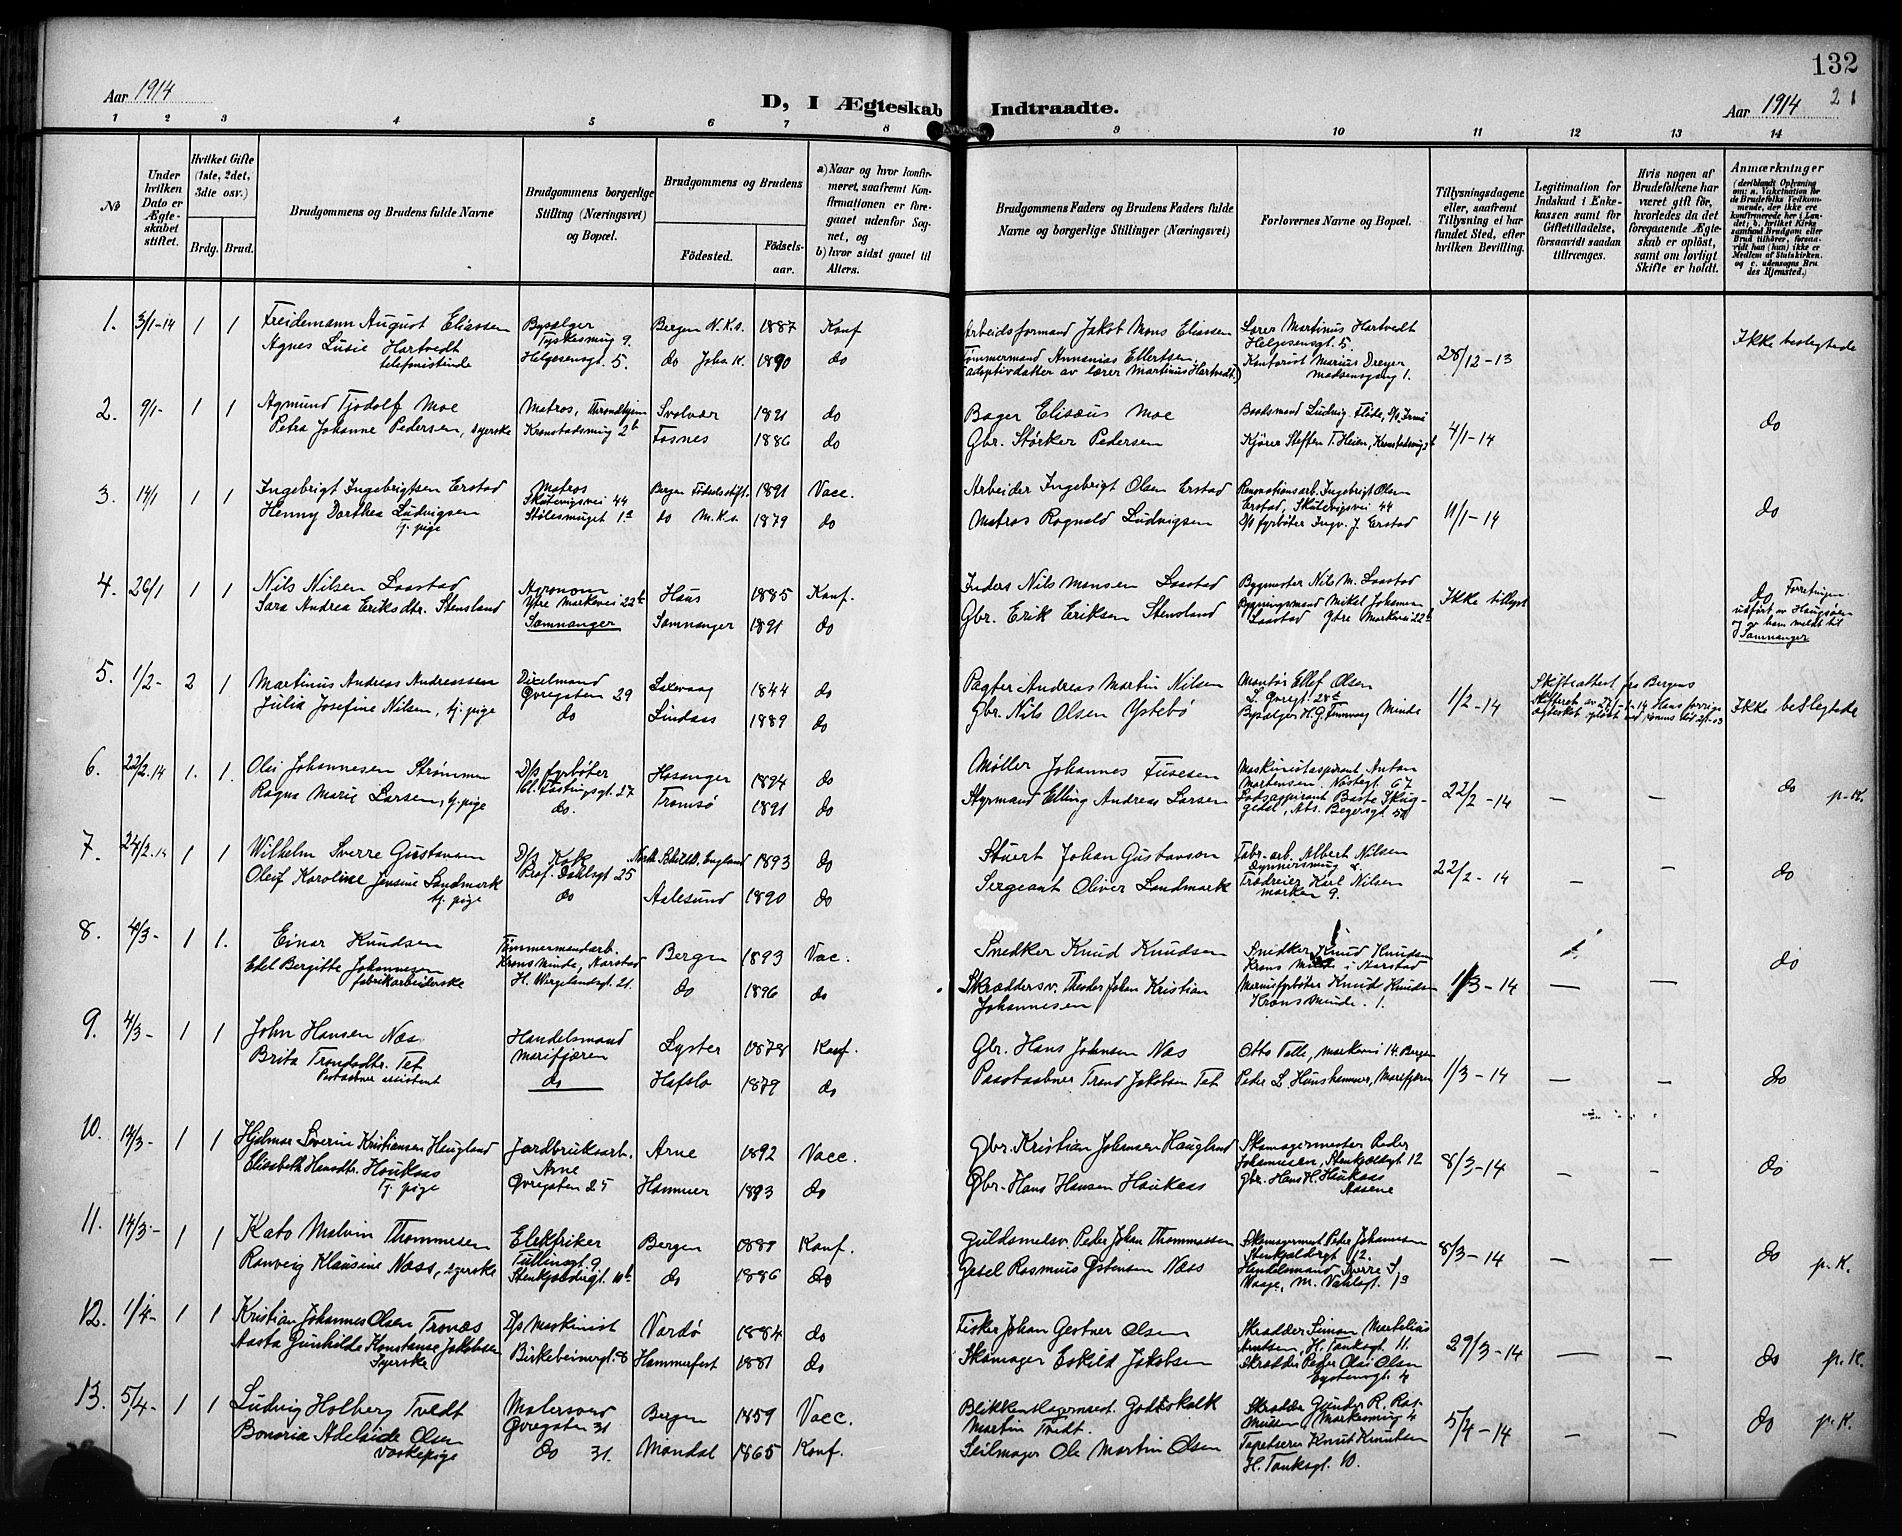 132
21
Aar 1914
D, I Ægteskab Indtraadte.
Aar 1914
1 2 3 4 5 6 7 8 9 10 11 12 13 14
No
Under hvilken Dato er Ægteskabet stiftet.
Hvilket Gifte (1ste, 2det, 3die osv.)
Brdg. Brud.
Brudgommens og Brudens fulde Navne
Brudgommens borgerlige Stilling (Næringsvei) og Bopæl.
Brudgommens og Brudens
Födested. Födselsaar.
a) Naar og hvor konfirmeret, saafremt Konfirmationen er foregaaet udenfor Sognet, og
b) hvor sidst gaaet til Alters.
Brudgommens Faders og Brudens Faders fulde Navne og borgerlige Stillinger (Næringsvei)
Forlovernes Navne og Bopæl.
Tillysningsdagene eller, saafremt Tillysning ei har fundet Sted, efter hvilken Bevilling.
Legitimation for Indskud i Enkekassen samt for Giftetilladelse, forsaavidt saadan tiltrænges.
Hvis nogen af Brudefolkene har været gift før, hvorledes da det foregaaende Ægteskab er opløst, samt om lovligt Skifte er holdt.
Anmærkninger
(deriblandt Oplysning om: a. Vakcination for de Brudefolks Vedkommende, der ikke ere konfirmerede her i Landet; b. hvilket Kirkesamfund Brudgom eller Brud tilhører, forsaavidt han (hun) ikke er Medlem af Statskirken, og c. udensogns Brudes Hjemsted.)
1. 3/1-14 1 1 Freidemann August Eliassen Bysælger Bergen N.K.s. 1887 Konf Arbeidsformand Jakob Mons Eliassen Lærer Martinus Hartvedt Ikke beslegtede
Tyskesmug 9. Helgesensgt. 5.
Agnes Lusie Hartvedt Helgesensgt. 5. do Joha K. 1890 do Tømmermand Annanias Ellertsen Kontorist Marius Dreyer 28/12-13
telefonistinde (adoptivdatter av lærer Martinus Hartvedt) Madsensgang 1.
2. 9/1- 1 1 Agmund Tjodolf Moe Matros, Throndhjem Svolvær 1891 do Bager Elisæus Moe Baadsmand Ludvig Fløde, do
Petra Johanne Pedersen, syerske Kronstadsmug 2b Fosnes 1886 do Gbr. Størker Pedersen Kjører Steffen T. Heien, 4/1-14
3. 14/1 1 1 Ingebrigt Ingebrigtsen Erstad Matros Bergen Fødselsstift. 1891 Vacc. Arbeider Ingebrigt Olsen Erstad Renovationsarb. Ingebrigt Olsen do
Skutevigsvei 44 Erstad, Skutevigsvei 44
Henny Dorthea Ludvigsen Stølesmuget 1a do M.K.s. 1879 do Matros Rognald Ludvigsen D/s fyrbøter Ingv. J. Erstad 11/1-14
tj. pige
4. 26/1 1 1 Nils Nilsen Laastad Agronom Haus 1885 Konf. Inders Nils Monsen Laastad Bygmester Nils M. Laastad Ikke tillyst do Forretningen
Ytre Markevei 22b udført av
Sara Andrea Eriksdtr. Stensland Samnanger Samnanger 1891 do Gbr. Erik Eriksen Stensland Bygningsmand Mikal Johannes og av ham meldt til
Laastad Ytre Markevei 22b Samnanger
5. 1/2- 2 1 Martinus Andreas Andreassen Dixelmand Laxevaag 1844 do Pagter Andreas Martin Nilsen Montør Ellef Olsen 1/2-14 Skifteattest fra Bergens Ikke beslegtede
Øvregaten 29 L. Øvregt. 28a
Julia Josefine Nilsen, tj. pige do Lindaas 1889 do Gbr. Nils Olsen Ystebø Bysælger H. G. Minde
6. 22/2.14 1. 1. Olai Johannesen Strømmen D/s fyrbøter Hosanger 1894 do Møller Johannes Maskinistaspirant Anton do p.K.
27 Martensen, Nøstegt. 67
Ragna Marie Larsen, tj. pige do. Tromsø 1891 do Styrmand Elling Andreas Larsen 22/2-14 — —
7. 24/2.14 1 1 Wilhelm Sverre Gustavsen D/s Kok England 1893 do Stuert Johan Gustavson Fabr.-arb. Albert Nilsen 22/2-14 — — do
Prof. Dahlsgt 25
Oleif Karoline Jensine Landmark do Aalesund 1890 do Sergeant Oliver Landmark Karl Nilsen
tj. pige marken 9.
8. 4/3- 1 1. Einar Knudsen Tømmermandarb. Bergen 1893 Vac. Snedker Knud Knudsen Snedker Knud Knudsen do
Krons Minde, Aarstad Krons Minde i Aarstad
Edel Bergitte Johannesen H. Wergelandsgt. 21. do 1896 do Skræddersv. Theodor Johan Kristian Knud Knudsen 1/3-14 — —
fabrikarbeiderske Johannesen Krons Minde. 1.
9. 4/3- 1 1 John Hansen Næs Handelsmand Lyster 1878 Konf. Gbr. Hans Johnsen Næs Otto Talle, Markevei 14. Bergen
Marifjæren
Brita Trondsdtr. Tet do Hafslo 1879 do Postaabner Trond Jakobsen Tet Peder L. Marifjæren 1/3-14 — — do
Postaabner assistent
10. 14/3- 1 1 Hjalmar Severin Kristiansen Haugland Jordbruksarb. Arne 1892 Vacc. Gbr. Kristian Johansen Haugland Skomagermester Peder 8/3-14 — — do
Arne Johannesen, Stenkjeldergt 12
Elisabeth Hansdtr. Haukaas Øvregaten 25 Hammer 1893 do Gbr. Hans Hansen Haukaas Gbr. Hans H. Haukaas
tj. pige Aasene
11. 14/3- 1 1 Kato Malvin Thommesen Elektriker Bergen 1889 Konf. Guldsmedsv. Peder Johan Thommassen Skomagermest Peder Johannesen 8/3-14 — — do p.K.
Tullinsgt 9. Stenkjeldergt 12.
Ranveig Klausine Næss, syerske Stenkjeldergt. 10b do 1886 do Gesel Rasmus Østensen Næss Handelsmand Sverre S.
Vaage, M. 13
12. 1/4- 1 1 Kristian Johannes Olsen Tronæs D/s Maskinist Vardø 1884 do Fisker Johan Gestner Olsen Skrædder Simon Martelius 29/3-14 — — do p.K.
Arntsen, H. Tanksgt. 11.
Aasta Gunhilde Konstanse Jakobsen Birkebeinergt. 8 Hammerfest 1881 do Skomager Eskild Jakobsen Skrædder Peder Olai Olsen
Syerske Eystensgt. 4
13. 5/4- 1 1 Ludvig Holberg Tvedt Malersvend Bergen 1859 Vacc. Blikkenslagermest. Gottskalk Skrædder Gunder R. Ras- 5/4-14 — — do p.K.
Øvregaten 31 Martin Tvedt. mussen, Markesmug 4
Bonoria Adelaide Olsen do 31. Mandal 1865 Konf. Seilmager Ole Martin Olsen Tapetserer Knut Knutsen
Vaskepige H. Tanksgt. 10.